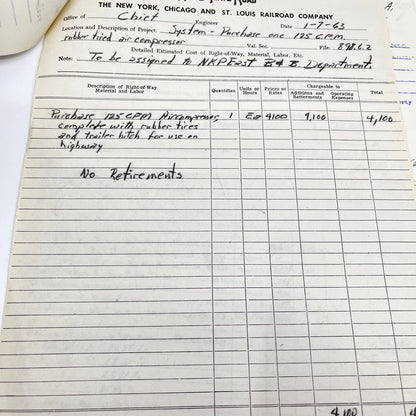 THE NEW YORK, CHICAGO AND ST. LOUIS RAILROAD COMPANY
Office of Chief Engineer Date 1-7-63
Location and Description of Project: System - Purchase one 125 C.P.M.
rubber tired air compressor Val. Sec. File
Detailed Estimated Cost of Right-of-Way, Material, Labor, Etc.
Note: To be assigned to NKP East B&B Department.
Description of Right-of-Way Material and Labor Quantities Units or Hours Prices or Rates Chargeable to Additions and Betterments Operating Expenses Total
Purchase 125 CPM 1 Ea 4100 4,100 4,100
complete with rubber tires
and trailer hitch for use on
highway
No Retirements
4,100